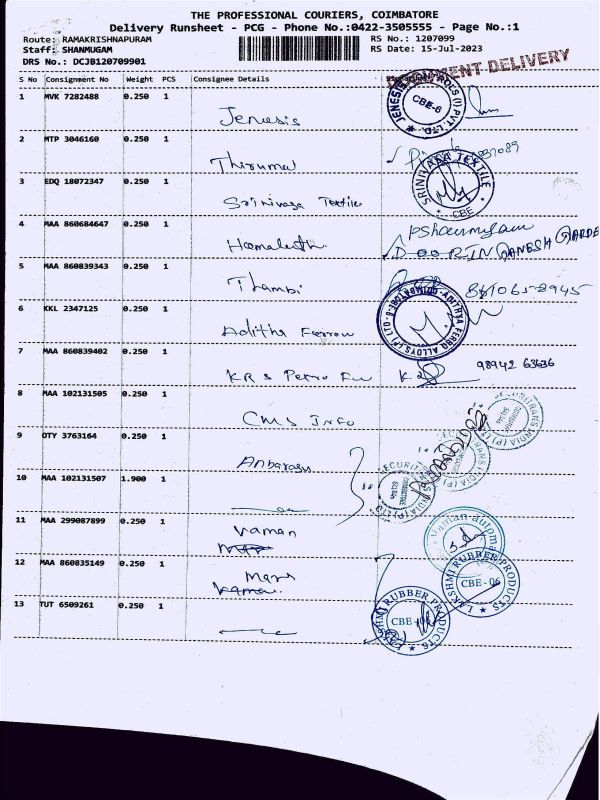 THE PROFESSIONAL COURIERS, COIMBATORE
Delivery Runsheet - PCG - Phone No.:0422-3505555 - Page No.:1
Route: RAMAKRISHNAPURAM RS No.: 1207099
Staff: SHANMUGAM RS Date: 15-Jul-2023
DRS No.: DCJB120709901
DELIVERY
S No Consignment No Weight PCS Consignee Details
1 MVK 7282488 0.250 1 Jenesis
JENESIS (I) PVT. LTD. CBE-6
2 MTP 3046160 0.250 1 Thirumal
3 EDQ 18072347 0.250 1 Srinivasa Textile
SRINIVASA TEXTILE CBE
4 MAA 860684647 0.250 1
DOOR IN GANESH
5 MAA 860839343 0.250 1 Thambi
6 KKL 2347125 0.250 1 Aditha Ferrow
ADITHYA FERRO ALLOYS (P) LTD
7 MAA 860839402 0.250 1 KRS Petro 98942 63636
8 MAA 102131505 0.250 1 CMS Info
SECURITRANS INDIA (P) LTD
9 OTY 3763164 0.250 1 Anbarasu
10 MAA 102131507 1.900 1
11 MAA 299087899 0.250 1 Vaman
12 MAA 860835149 0.250 1 Mars
LAKSHMI RUBBER PRODUCTS CBE-06
13 TUT 6509261 0.250 1
LAKSHMI RUBBER PRODUCTS CBE-06